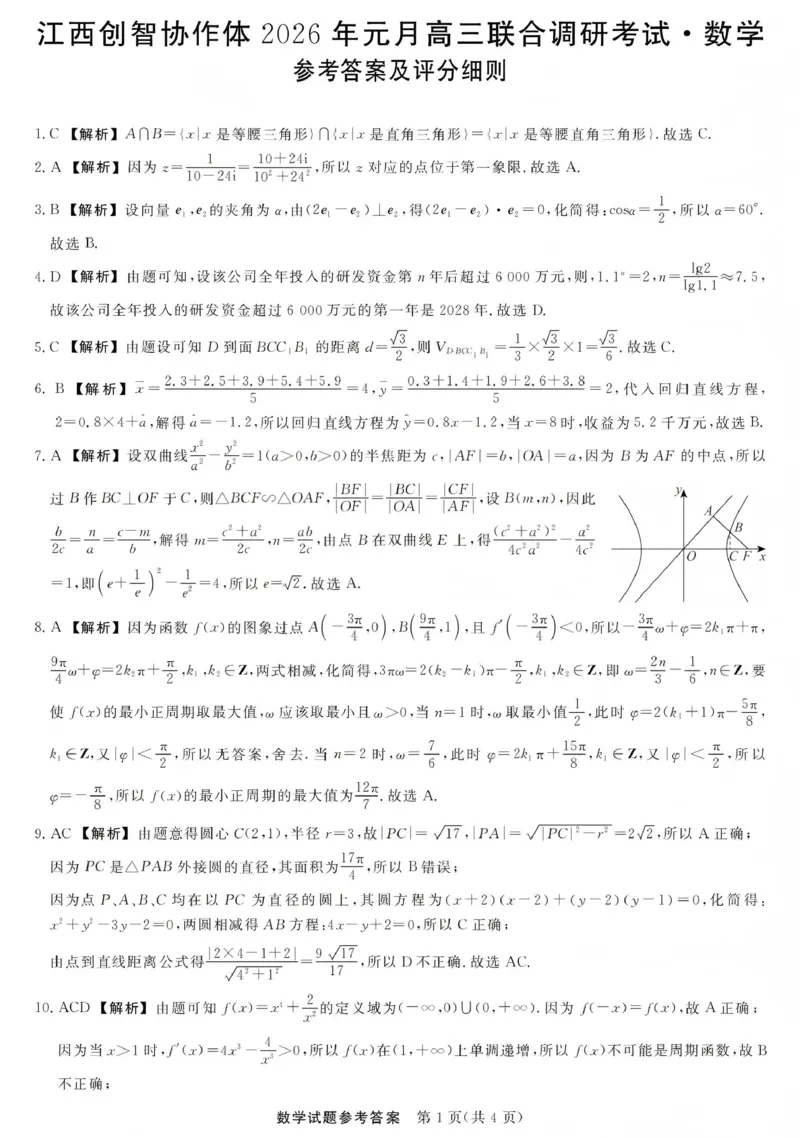 江西创智协作体 2026 年元月高三联合调研考试·数学
参考答案及评分细则
1. C 【解析】A∩B={x|x 是等腰三角形}∩{x|x 是直角三角形}={x|x 是等腰直角三角形}. 故选 C.
2. A 【解析】因为 z=1/(10-24i)=(10+24i)/(10²+24²),所以 z 对应的点位于第一象限. 故选 A.
3. B 【解析】设向量 e₁,e₂的夹角为 α,由(2e₁-e₂)⊥e₂,得(2e₁-e₂)·e₂=0,化简得:cosα=1/2,所以 α=60°.
故选 B.
4. D 【解析】由题可知,设该公司全年投入的研发资金第 n 年后超过 6 000 万元,则,1.1ⁿ=2,n=lg2/lg1.1≈7.5,
故该公司全年投入的研发资金超过 6 000 万元的第一年是 2028 年. 故选 D.
5. C 【解析】由题设可知 D 到面 BCC₁B₁ 的距离 d=√3/2,则 V_{DBCC₁B₁}=1/3×√3/2×1=√3/6. 故选 C.
6. B 【解析】x̄=(2.3+2.5+3.9+5.4+5.9)/5=4,ȳ=(0.3+1.4+1.9+2.6+3.8)/5=2,代入回归直线方程,
2=0.8×4+â,解得 â=-1.2,所以回归直线方程为 ŷ=0.8x-1.2,当 x=8 时,收益为 5.2 千万元,故选 B.
7. A 【解析】设双曲线 x²/a²-y²/b²=1(a>0,b>0)的半焦距为 c,|AF|=b,|OA|=a,因为 B 为 AF 的中点,所以
过 B 作 BC⊥OF 于 C,则△BCF∽△OAF,|BF|/|OF|=|BC|/|OA|=|CF|/|AF|,设 B(m,n),因此
b/2c=n/a=(c-m)/b,解得 m=(c²+a²)/2c,n=ab/2c,由点 B 在双曲线 E 上,得(c²+a²)²/4c²a²-a²/4c²
=1,即(e+1/e)²-1/e²=4,所以 e=√2. 故选 A.
y
A
B
O
C F x
8. A 【解析】因为函数 f(x)的图象过点 A(-3π/4,0),B(9π/4,1),且 f′(-3π/4)<0,所以-3π/4ω+φ=2k₁π+π,
9π/4ω+φ=2k₂π+π/2,k₁,k₂∈Z,两式相减,化简得,3πω=2(k₂-k₁)π-π/2,k₁,k₂∈Z,即 ω=2n/3-1/6,n∈Z,要
使 f(x)的最小正周期取最大值,ω 应该取最小且 ω>0,当 n=1 时,ω 取最小值 1/2,此时 φ=2(k₁+1)π-5π/8,
k₁∈Z,又|φ|<π/2,所以无答案,舍去. 当 n=2 时,ω=7/6,此时 φ=2k₁π+15π/8,k₁∈Z,又|φ|<π/2,所以
φ=-π/8,所以 f(x)的最小正周期的最大值为 12π/7. 故选 A.
9. AC 【解析】由题意得圆心 C(2,1),半径 r=3,故|PC|=√17,|PA|=√(|PC|²-r²)=2√2,所以 A 正确;
因为 PC 是△PAB 外接圆的直径,其面积为 17π/4,所以 B 错误;
因为点 P、A、B、C 均在以 PC 为直径的圆上,其圆方程为(x+2)(x-2)+(y-2)(y-1)=0,化简得:
x²+y²-3y-2=0,两圆相减得 AB 方程:4x-y+2=0,所以 C 正确;
由点到直线距离公式得 |2×4-1+2|/√(4²+1²)=9√17/17,所以 D 不正确. 故选 AC.
10. ACD 【解析】由题可知 f(x)=x⁴+2/x²的定义域为(-∞,0)∪(0,+∞). 因为 f(-x)=f(x),故 A 正确;
因为当 x>1 时,f′(x)=4x³-4/x³>0,所以 f(x)在(1,+∞)上单调递增,所以 f(x)不可能是周期函数,故 B
不正确;
数学试题参考答案 第 1 页(共 4 页)